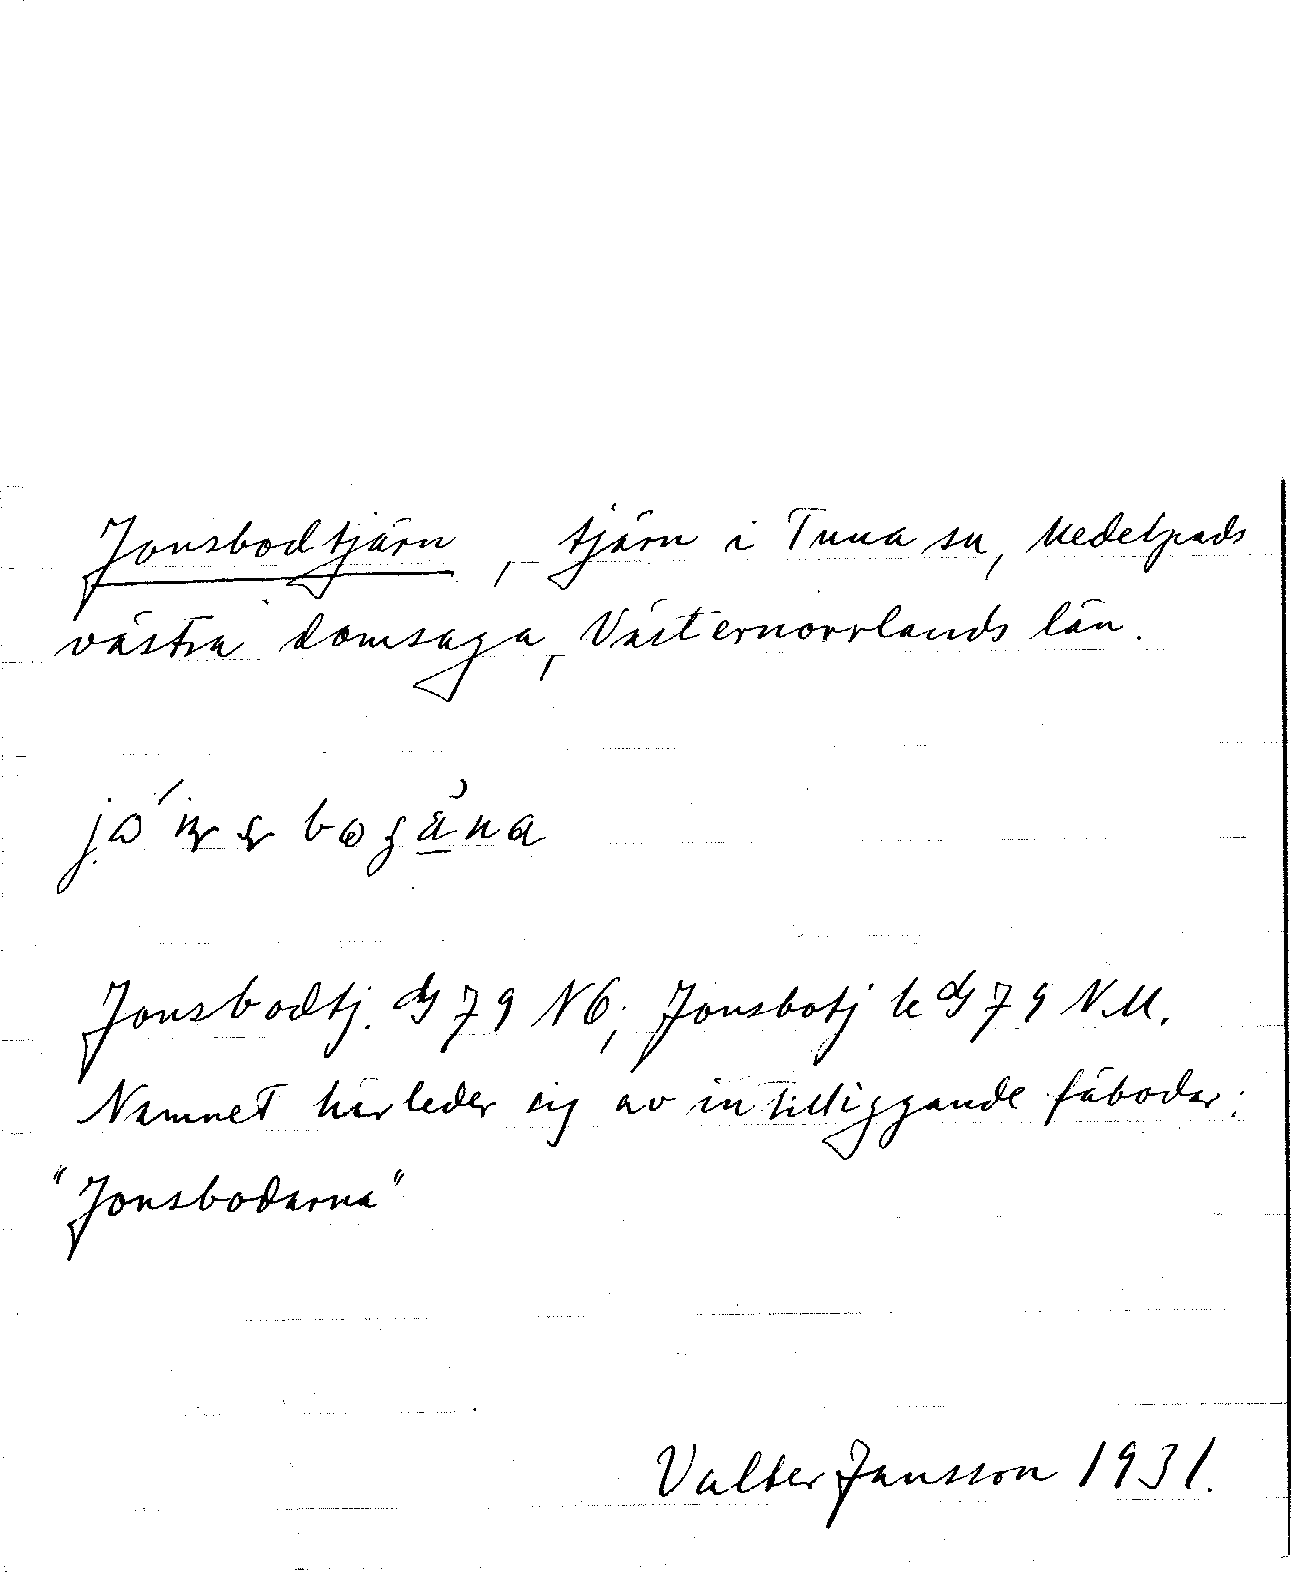 Jonsbodtjärn, tjärn i Tuna sn, Medelpads
västra domsaga, Västernorrlands län.
Jonsbodtj. 79 NÖ; Jonsbotj 79 NM.
Namnet härleder sig av intilliggande fäbodar:
"Jonsbodarna"
Valter Jansson 1931.